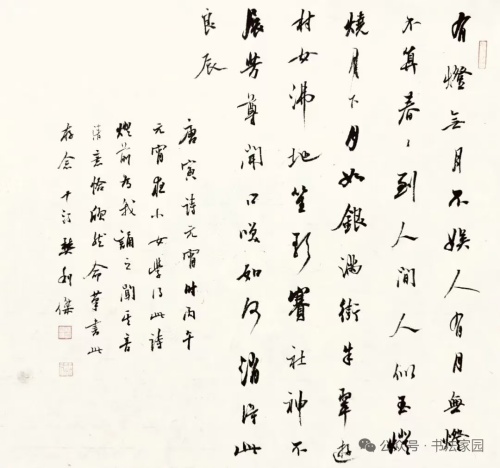 有燈無月不娛人有月無燈
不算春〻到人間人似玉燈
燒月下月如銀滿街朱翠遊
村女沸地笙歌賽社神不
展芳尊開口笑如何消得此
良辰
唐寅詩元宵時丙午
元宵夜小女學得此詩
燈前為我誦之聞其音
意恰欣然命筆書此
存念 樊利傑
公众号·书法家园